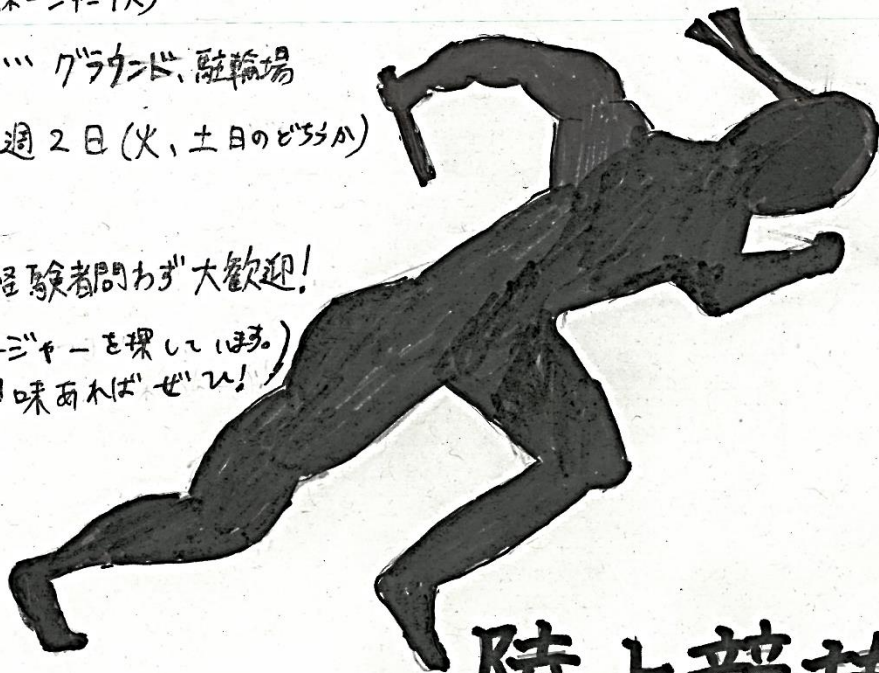 … グラウンド、駐輪場
週2日(火、土日のどちらか)
経験者問わず大歓迎!
ージャーを探しています。)
味あればぜひ!
陸上競技